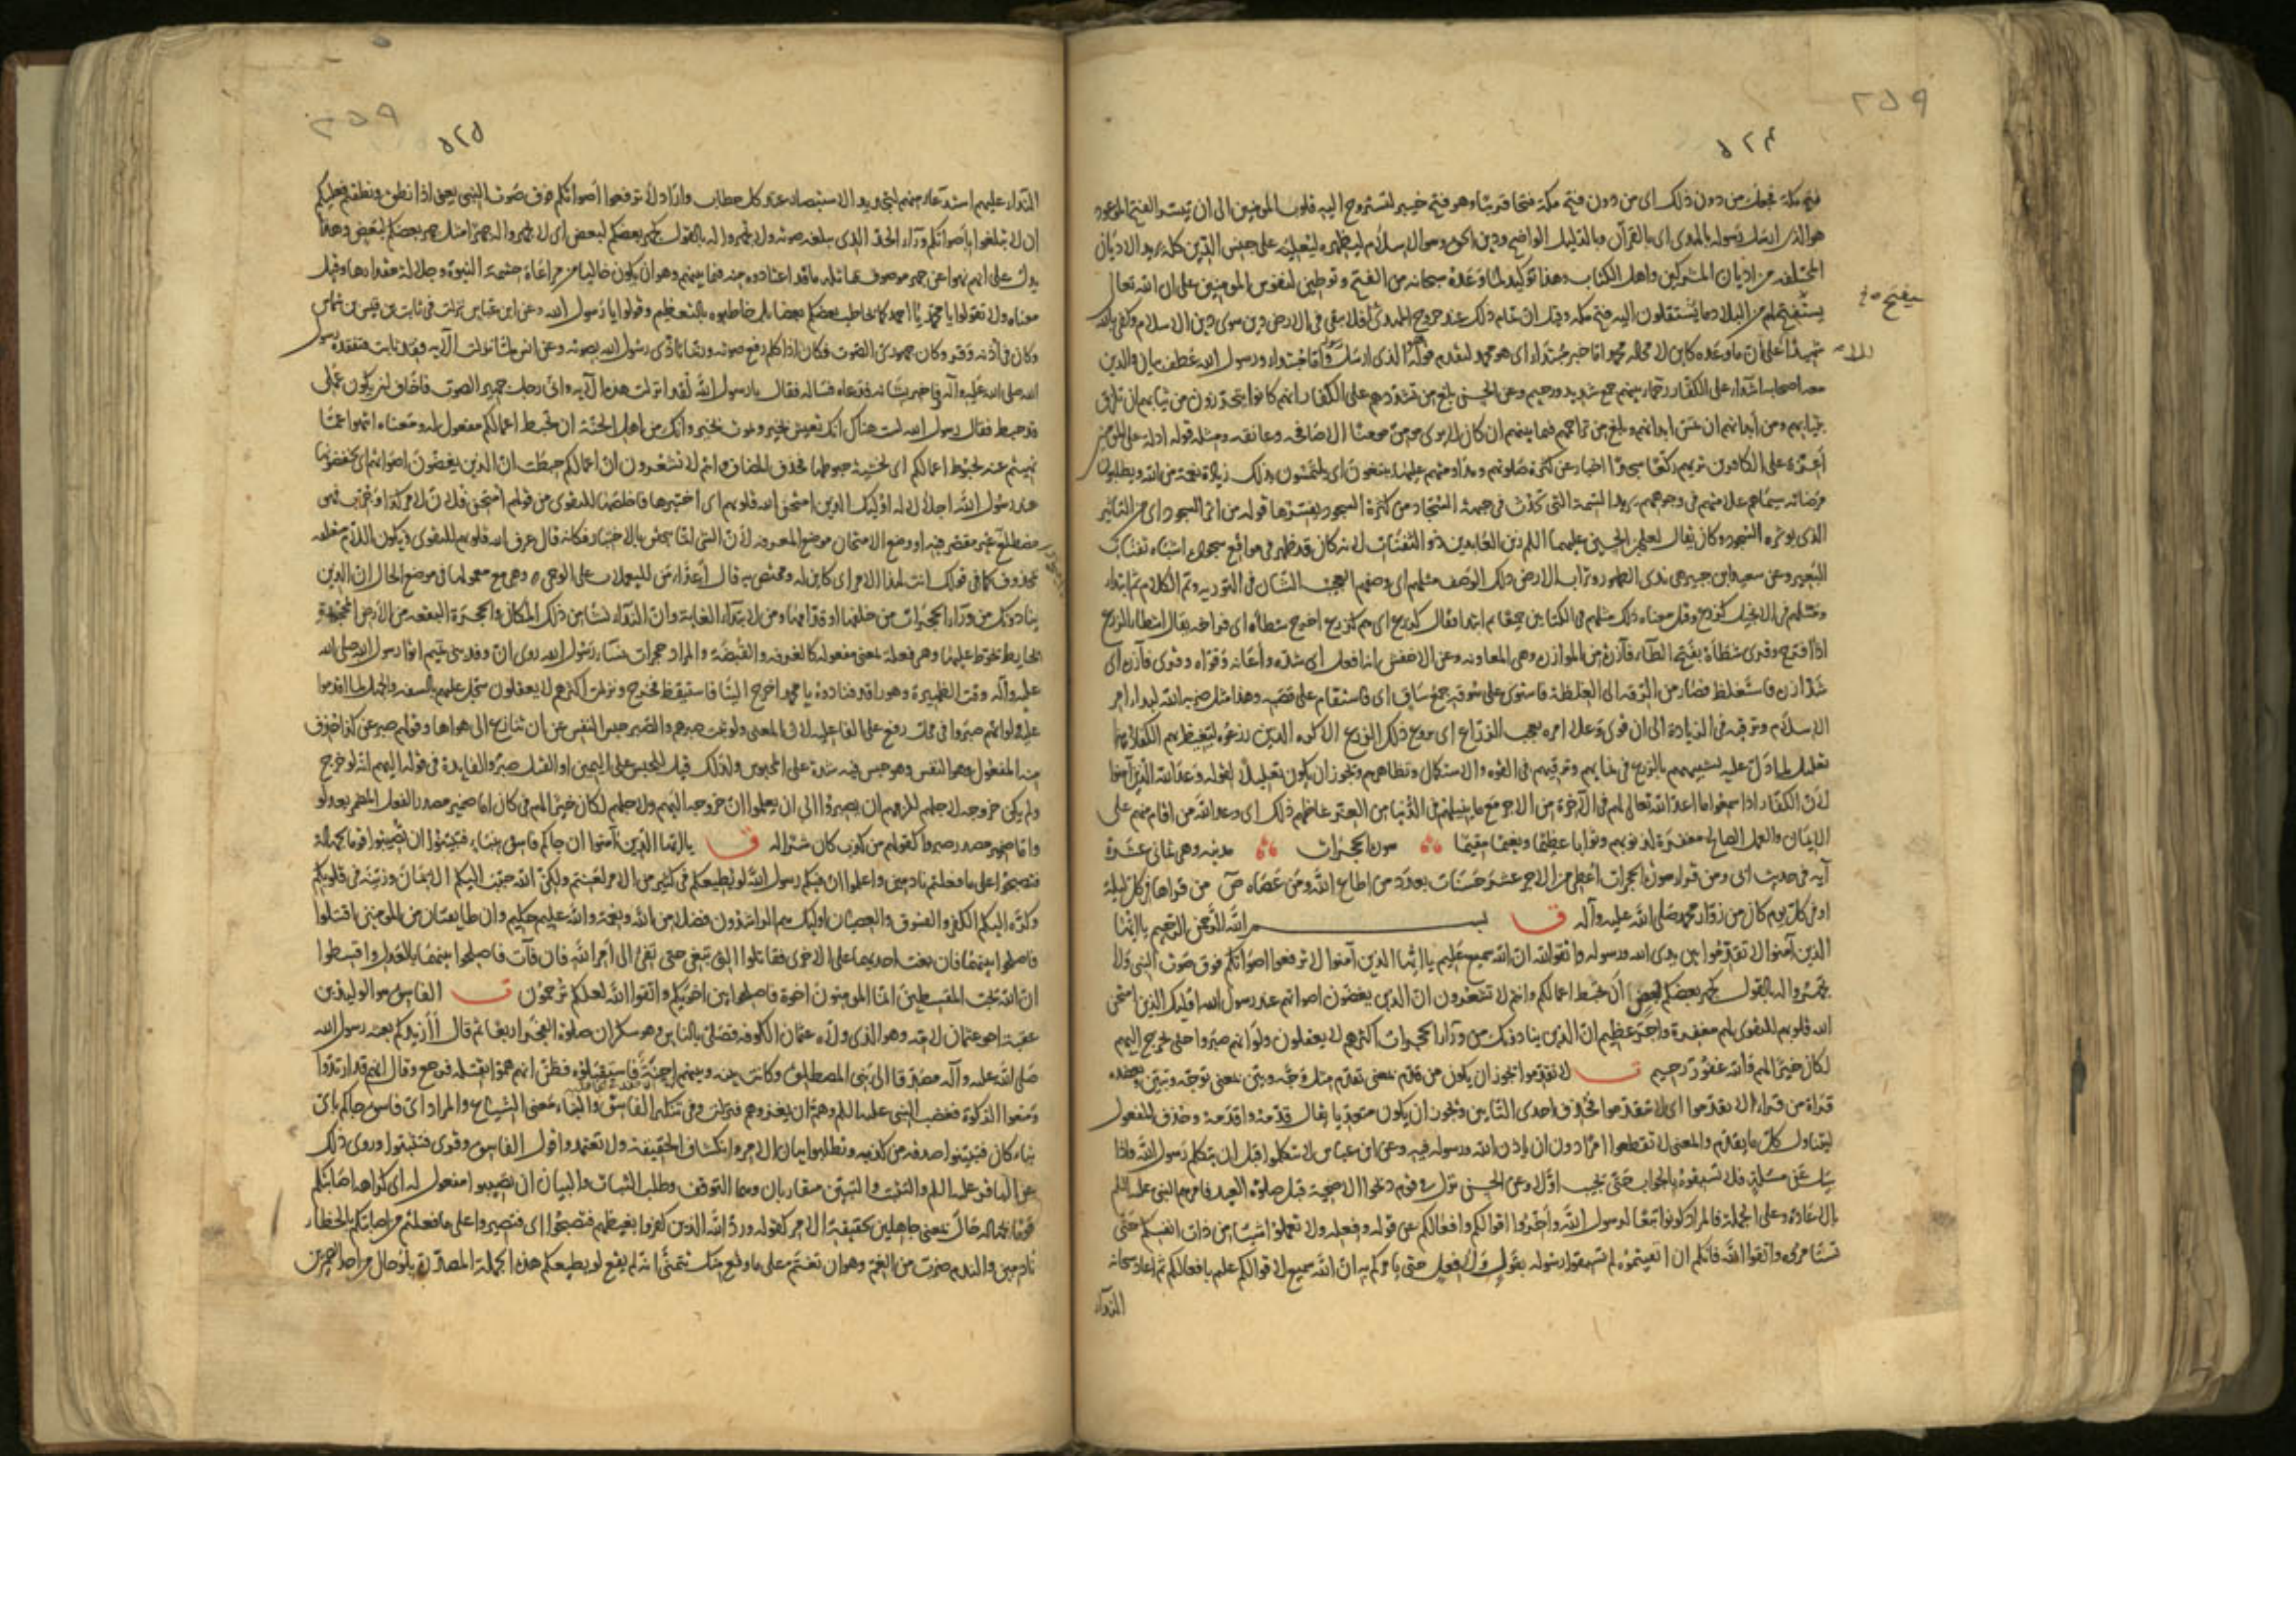 ٥٢٤
فتح مكة فجعل من دون ذلك اى من دون فتح مكة فتحا قريبا وهو فتح خيبر لتستروح اليه قلوب المؤمنين الى ان تيسر الفتح الموعود
هو الذى ارسل رسوله بالهدى اى بالقرآن وبالدليل الواضح ودين الحق وهو الاسلام ليظهره ليعليه على جنس الدين كله يريد الاديان
المختلفة من اديان المشركين واهل الكتاب وهذا توكيد لما وعده سبحانه من الفتح وتوطين لنفوس المؤمنين على ان الله تعالى
سيفتح
يستفتح لهم من البلاد ما يستقلون اليه فتح مكة وقيل ان تمام ذلك عند خروج المهدى ع فلا يبقى فى الارض دين سوى دين الاسلام وكفى بالله
شهيدا على ان ما وعده كاين لا محالة محمد اما خبر مبتداء اى هو محمد لتقدم قوله هو الذى ارسل رسوله واما مبتداء ورسول الله عطف بيان والذين
معه اصحابه اشداء على الكفار رحماء بينهم جمع شديد ورحيم وعن الحسن بلغ من تشددهم على الكفار انهم كانوا يتحرزون من ثيابهم ان تلزق
بثيابهم ومن ابدانهم ان تمس ابدانهم وبلغ من تراحمهم فيما بينهم ان كان لا يرى مؤمن مؤمنا الا صافحه وعانقه ومثله قوله اذلة على المؤمنين
اعزة على الكافرين تريهم ركعا سجدا اخبار عن كثرة صلوتهم ومداومتهم عليها يبتغون اى يلتمسون بذلك زيادة نعمة من الله ويطلبون
مرضاته سيماهم علامتهم فى وجوههم يريد السمة التى تحدث فى جبهة السجاد من كثرة السجود يفسرها قوله من اثر السجود اى من التاثير
الذى يوثره السجود وكان يقال لعلى بن الحسين عليهما السلم زين العابدين ذو الثفنات لانه كان قد ظهر فى مواضع سجوده اشباه ثفنات
البعير وعن سعيد بن جبير هى ندى الطهور وتراب الارض ذلك الوصف مثلهم اى وصفهم العجيب الشان فى التورية وتم الكلام ثم ابتداء
ومثلهم فى الانجيل كزرع وقيل معناه ذلك مثلهم فى الكتابين جميعا ثم ابتدا فقال كزرع اى هم كزرع اخرج شطأه اى فراخه يقال اشطاء الزرع
اذا افرخ وقرى شطأه بفتح الطاء فآزره من الموازرة وهى المعاونة وعن الاخفش انها افعل اى شده واعانه وقواه وقرى فازره اى
شد ازره فاستغلظ فصار من الدقة الى الغلظة فاستوى على سوقه جمع ساق اى فاستقام على قصبه وهذا مثل ضربه الله لبداء امر
الاسلام وترقيه فى الزيادة الى ان قوى وعلا امره يعجب الزراع اى يروع ذلك الزرع الاكرة الذين زرعوه ليغيظ بهم الكفار
تعليل لما دل عليه تشبيههم بالزرع فى نمايهم وترقيهم فى القوة والاستكمال وتظاهرهم ويجوز ان يكون تعليلا لقوله وعد الله الذين آمنوا
لان الكفار اذا سمعوا ما اعد الله تعالى لهم فى الآخرة من الاجر مع ما ينيلهم فى الدنيا من العز غاظهم ذلك اى وعد الله من اقام منهم على
الايمان والعمل الصالح مغفرة لذنوبهم وثوابا عظيما ونعيما مقيما سورة الحجرات مدنية وهى ثمانى عشرة
آية فى حديث ابى ومن قراء سورة الحجرات اعطى من الاجر عشر حسنات بعدد من اطاع الله ومن عصاه ص من قراها فى كل ليلة
او فى كل يوم كان من زوار محمد صلى الله عليه وآله ق بسم الله الرحمن الرحيم يا ايها
الذين آمنوا لا تقدموا بين يدى الله ورسوله واتقوا الله ان الله سميع عليم يا ايها الذين آمنوا لا ترفعوا اصواتكم فوق صوت النبى ولا
تجهروا له بالقول كجهر بعضكم لبعض ان تحبط اعمالكم وانتم لا تشعرون ان الذين يغضون اصواتهم عند رسول الله اوليك الذين امتحن
الله قلوبهم للتقوى لهم مغفرة واجر عظيم ان الذين ينادونك من ورآء الحجرات اكثرهم لا يعقلون ولو انهم صبروا حتى تخرج اليهم
لكان خيرا لهم والله غفور رحيم ت لا تقدموا يجوز ان يكون من قدم بمعنى تقدم مثل وجه وبين بمعنى توجه وتبين ويعضده
قراة من قراء لا تقدموا اى لا تتقدموا فحذف احدى التايين ويجوز ان يكون متعديا يقال قدمه واقدمه وحذف المفعول
ليتناول كل ما يقدم والمعنى لا تقطعوا امرا دون ان ياذن الله ورسوله فيه وعن ابن عباس لا تتكلموا قبل ان يتكلم رسول الله واذا
سئل عن مسئلة فلا تسبقوه بالجواب حتى يجيب اولا وعن الحسن نزل فى قوم ذبحوا الاضحية قبل صلوة العيد فامرهم النبى عليه السلم
بالاعادة وعلى الجملة فالمراد كونوا تبعا لرسول الله واخروا اقوالكم وافعالكم عن قوله وفعله ولا تعملوا شيئا من ذات انفسكم حتى
تستامروه واتقوا الله فانكم ان اتقيتموه لم تسبقوا رسوله بقول ولا فعل حتى يامركم به ان الله سميع لاقوالكم عليم بافعالكم ثم اعاد سبحانه
النداء
٥٢٥
النداء عليهم استدعاء منهم لتجديد الاستبصار عند كل خطاب وارد لا ترفعوا اصواتكم فوق صوت النبى يعنى اذا نطق ونطقتم فعليكم
ان لا تبلغوا باصواتكم ورآء الحد الذى يبلغه صوته ولا تجهروا له بالقول كجهر بعضكم لبعض اى لا تجهروا له جهرا مثل جهر بعضكم لبعض وهذا
يدل على انهم نهوا عن جهر موصوف بمماثلة ما قد اعتادوه منه فيما بينهم وهو ان يكون خاليا من مراعاة حشمة النبوة وجلالة مقدارها وقيل
معناه ولا تقولوا يا محمد يا احمد كما يخاطب بعضكم بعضا بل خاطبوه بالتعظيم وقولوا يا رسول الله وعن ابن عباس نزلت فى ثابت بن قيس بن شماس
وكان فى اذنه وقر وكان جهورى الصوت فكان اذا كلم رفع صوته وربما تاذى رسول الله بصوته وعن انس لما نزلت الآية فقد ثابت فتفقده رسول
الله صلى الله عليه وآله فاخبر بشانه فدعاه فساله فقال يا رسول الله لقد انزلت هذه الآية وانى رجل جهير الصوت فاخاف ان يكون عملى
قد حبط فقال رسول الله لست هناك انك تعيش بخير وتموت بخير وانك من اهل الجنة ان تحبط اعمالكم مفعول له ومعناه انتهوا عما
نهيتم عنه لحبوط اعمالكم اى لخشية حبوطها فحذف المضاف وانتم لا تشعرون ان اعمالكم حبطت ان الذين يغضون اصواتهم اى يخفضونها
عند رسول الله اجلالا له اوليك الذين امتحن الله قلوبهم اى اختبرها فاخلصها للتقوى من قولهم امتحن فلان لامر كذا وجرب فهو
مضطلع غير مقصر فيه او وضع الامتحان موضع المعرفة لان الشى انما يتحقق بالاختبار فكانه قال عرف الله قلوبهم للتقوى ويكون اللام متعلقة
بمحذوف كما فى قولك انت لهذا الامر اى كاين له ومختص به قال اعداء من لليعملات على الوجى وهى مع معمولها فى موضع الحال ان الذين
ينادونك من ورآء الحجرات من خلفها او قدامها ومن لابتداء الغاية وان النداء نشا من ذلك المكان والحجرة البقعة من الارض المحجورة
بحايط يحوط عليها وهى فعلة بمعنى مفعولة كالغرفة والقبضة والمراد حجرات نساء رسول الله روى ان وفد بنى تميم اتوا رسول الله صلى الله
عليه وآله وقت الظهيرة وهو راقد فنادوه يا محمد اخرج الينا فاستيقظ فخرج ونزلت اكثرهم لا يعقلون سجل عليهم بالسفه والجهل لما اقدموا
عليه ولو انهم صبروا فى محل رفع على الفاعلية لان المعنى ولو ثبت صبرهم والصبر حبس النفس عن ان تنازع الى هواها وقولهم صبر عن كذا حذف
منه المفعول وهو النفس وهو حبس فيه شدة على المحبوس ولذلك قيل للحبس على اليمين او القتل صبر والفايدة فى قوله اليهم انه لو خرج
ولم يكن خروجه لاجلهم للزمهم ان يصبروا الى ان يعلموا ان خروجه اليهم ولاجلهم لكان خيرا لهم فى كان اما ضمير مصدر الفعل المضمر بعد لو
واما ضمير مصدر صبروا كقولهم من كذب كان شرا له ق يا ايها الذين آمنوا ان جاكم فاسق بنباء فتبينوا ان تصيبوا قوما بجهالة
فتصبحوا على ما فعلتم نادمين واعلموا ان فيكم رسول الله لو يطيعكم فى كثير من الامر لعنتم ولكن الله حبب اليكم الايمان وزينه فى قلوبكم
وكره اليكم الكفر والفسوق والعصيان اوليك هم الراشدون فضلا من الله ونعمة والله عليم حكيم وان طايفتان من المؤمنين اقتتلوا
فاصلحوا بينهما فان بغت احديهما على الاخرى فقاتلوا التى تبغى حتى تفئ الى امر الله فان فآت فاصلحوا بينهما بالعدل واقسطوا
ان الله يحب المقسطين انما المؤمنون اخوة فاصلحوا بين اخويكم واتقوا الله لعلكم ترحمون ت الفاسق هو الوليد بن
عقبة اخو عثمان لامه وهو الذى ولاه عثمان الكوفة فصلى بالناس وهو سكران صلوة الفجر اربعا ثم قال أ أزيدكم بعثه رسول الله
صلى الله عليه وآله مصدقا الى بنى المصطلق وكانت بينه وبينهم احنة فاستقبلوه فظن انهم هموا بقتله فرجع وقال انهم قد ارتدوا
ومنعوا الزكوة فغضب النبى عليه السلم وهم ان يغزوهم فنزلت وفى تنكير الفاسق والنباء معنى الشياع والمراد اى فاسق جاكم باى
نباء كان فتبينوا صدقه من كذبه وتطلبوا بيان الامر وانكشاف الحقيقة ولا تعتمدوا قول الفاسق وقرى فتثبتوا وروى ذلك
عن الباقر عليه السلم والتثبت والتبين متقاربان وهما التوقف وطلب الثبات والبيان ان تصيبوا مفعول له اى كراهة اصابتكم
قوما بجهالة حال بمعنى جاهلين بحقيقة الامر كقوله ورد الله الذين كفروا بغيظهم فتصبحوا اى فتصيروا على ما فعلتم من اصابتكم بالخطاء
نادمين والندم ضرب من الغم وهو ان تغتم على ما وقع منك تتمنى انه لم يقع لو يطيعكم هذه الجملة المصدرة بلو حال من احد الضميرين